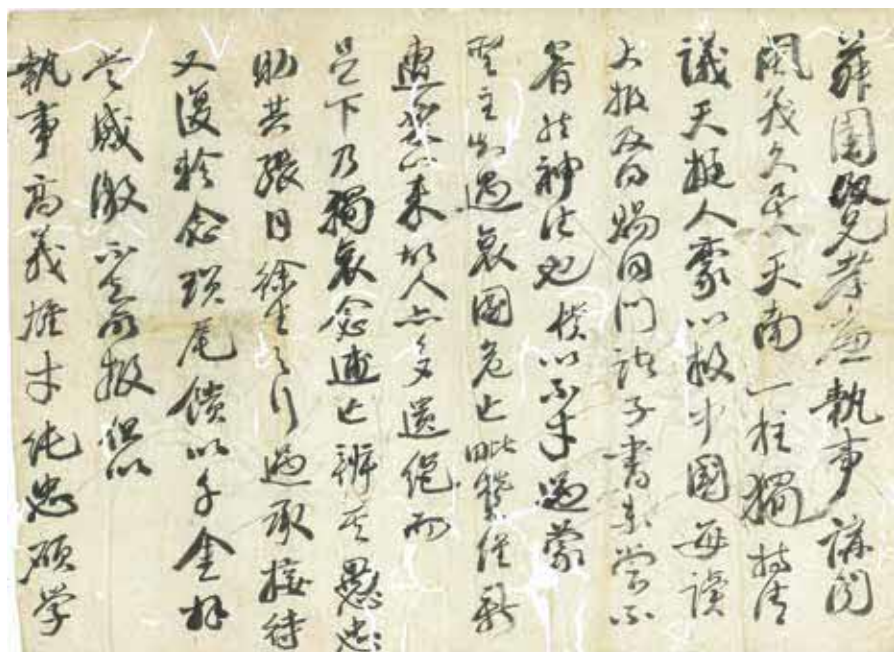 菽園賢兄孝廉執事講聞
風義久矣天南一柱獨持清
議天挺人豪以救中國每讀
大報及得賜同門諸子書未嘗不
眉飛神往也僕以不才過蒙
聖主知遇哀國危亡毗贊維新
遭變出來故人亦多遺絕而
足下乃獨哀念逋亡辨其愚忠
助共張目徐生之行過承接待
又復軫念瑣尾饋以千金拜
登感激不知所報但以
執事高義雄才純忠碩學